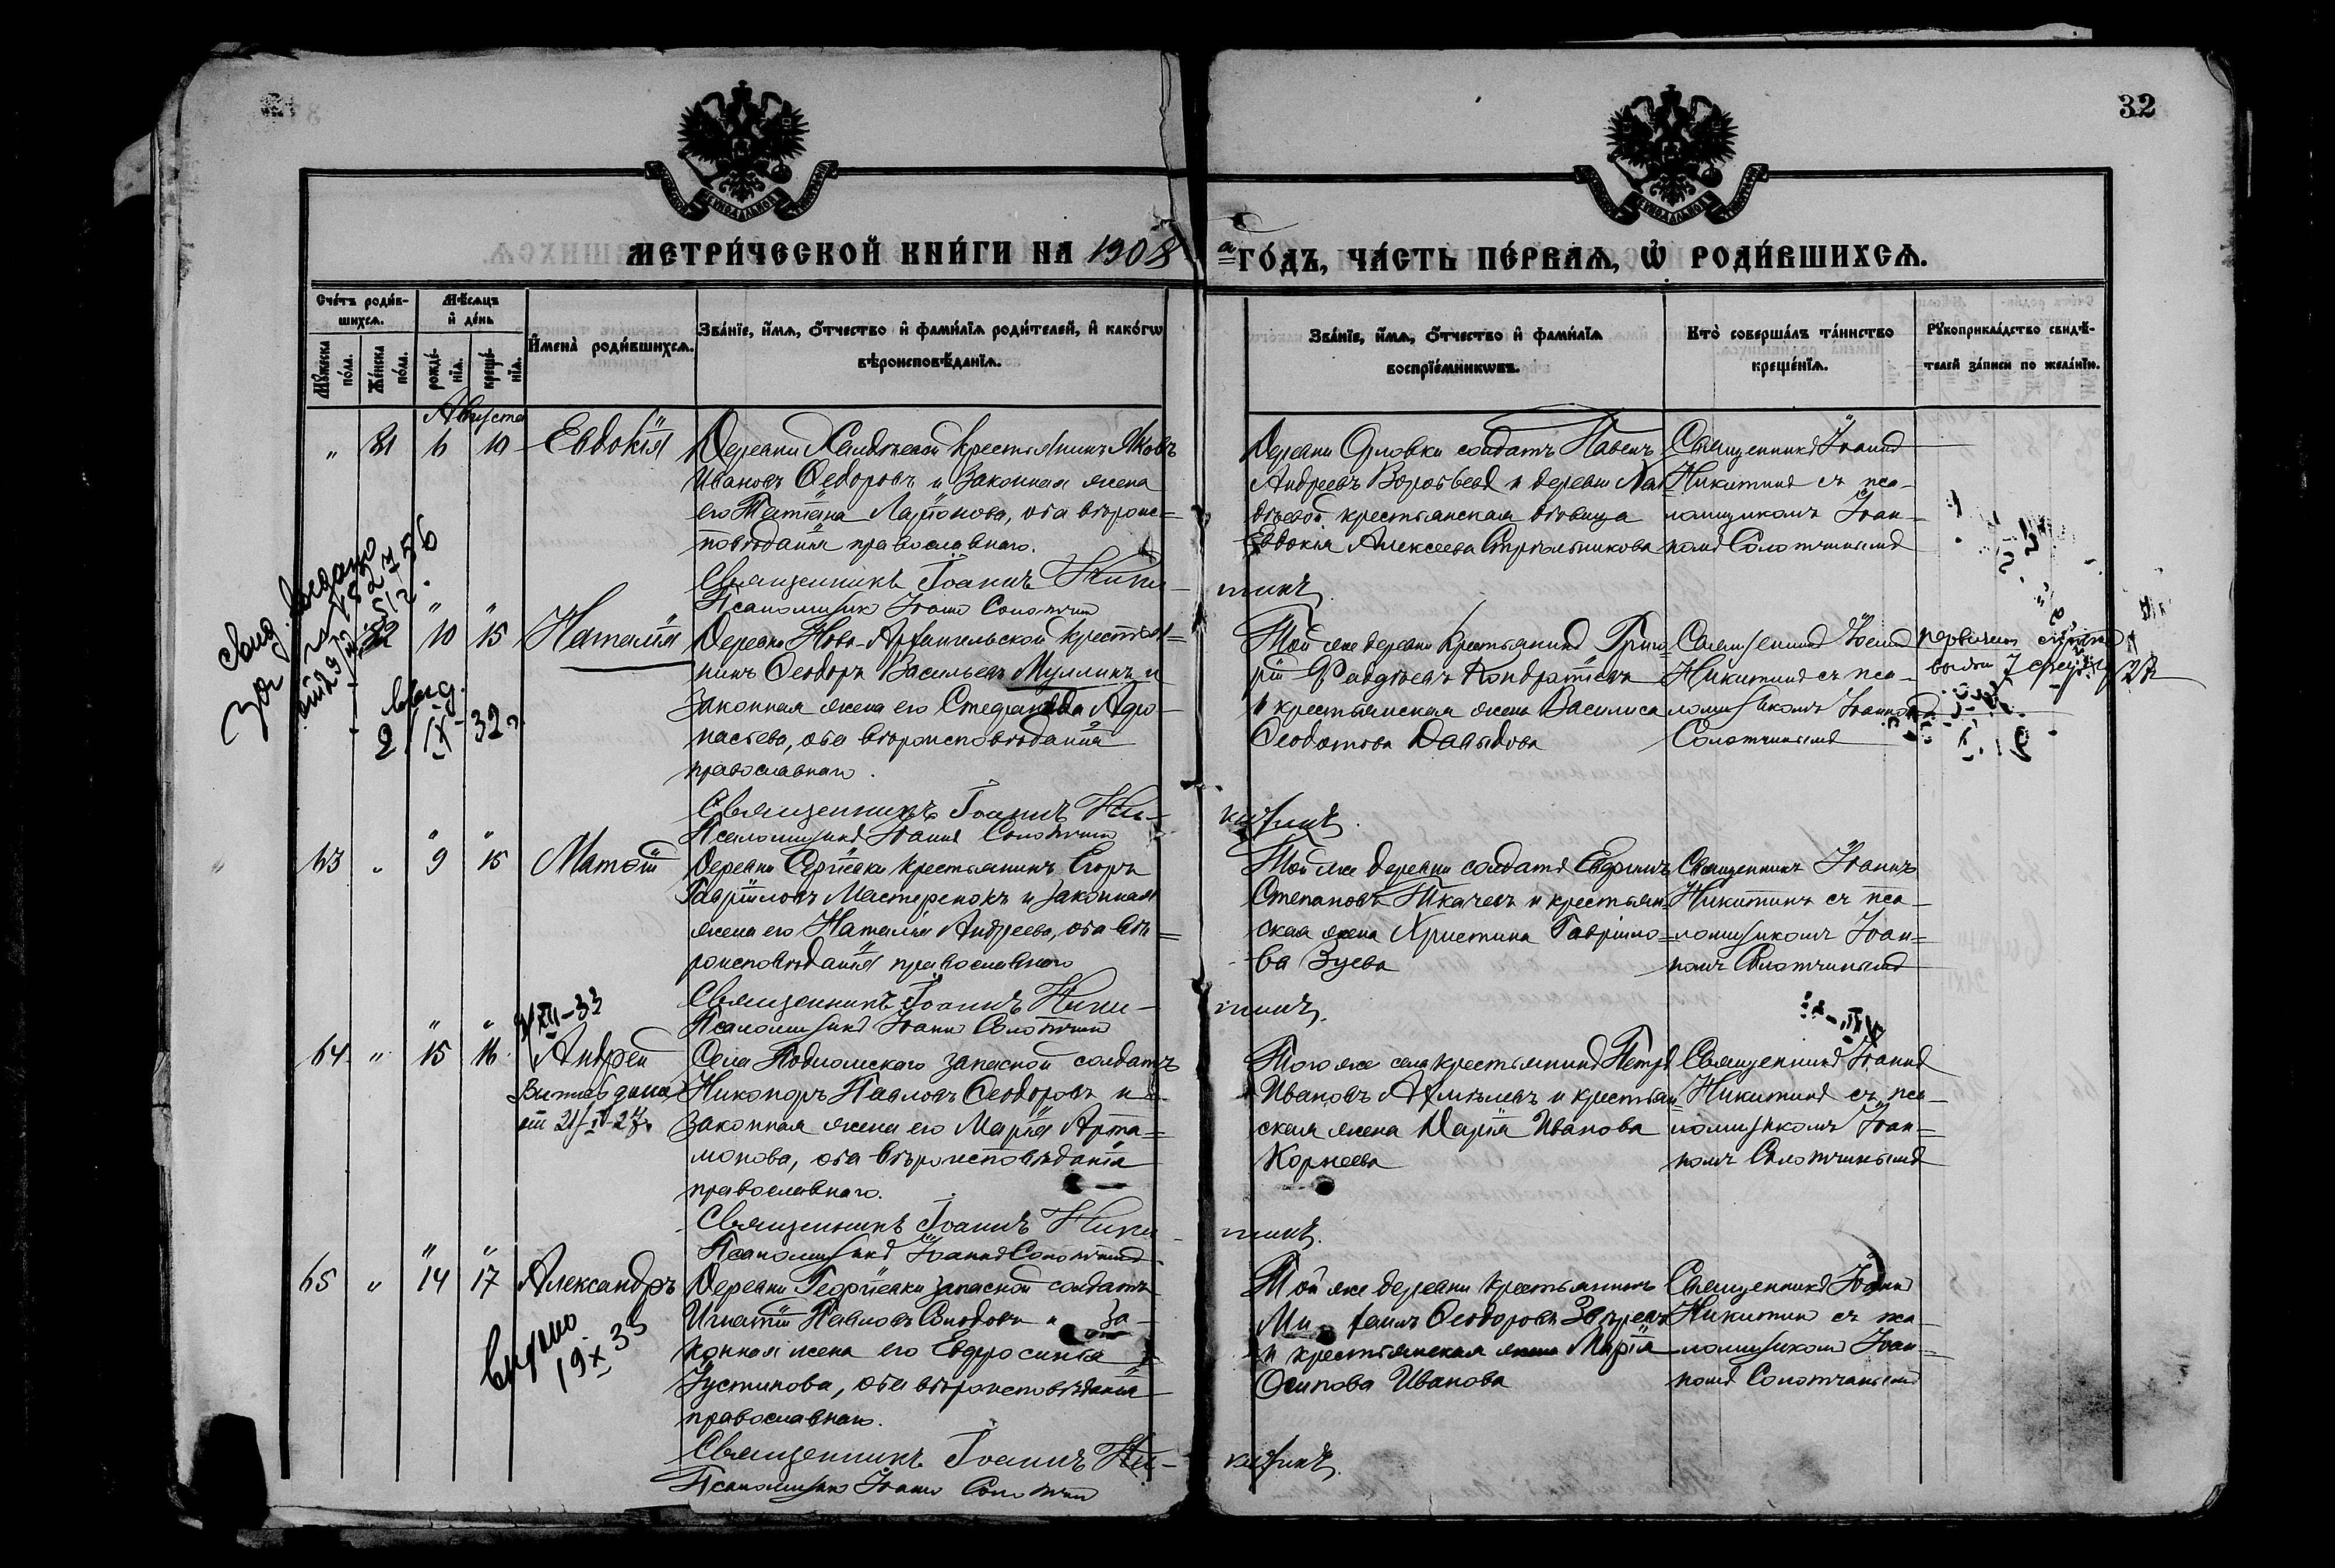 32
МЕТРИ́ЧЕСКОЙ КНИ́ГИ НА 1908 ГО́ДЪ, ЧА́СТЬ ПЕ́РВАѦ, Ѡ҆ РОДИ́ВШИХСѦ.
Сче́тъ роди́в-
шихсѧ.
Мꙋ́жеска по́ла.
Же́нска по́ла.
Мѣ́сѧцъ
и҆ де́нь
рожде́-
нїѧ.
креще́-
нїѧ.
И҆мена̀ роди́вшихсѧ.
Зва́нїе, и҆́мѧ, ѻ҆́тчество и҆ фами́лїѧ роди́телей, и҆ како́гѡ
вѣроисповѣ́данїѧ.
Зва́нїе, и҆́мѧ, ѻ҆́тчество и҆ фами́лїѧ
воспрїе́мникѡвъ.
Кто̀ соверша́лъ та́инство
креще́нїѧ.
Рꙋкоприкла́дство свидѣ́-
телей за́писи по жела́нїю.
Августа
" 81 6 10 Евдокія
Деревни крестьянинъ Яковъ
Ивановъ Ѳеодоровъ и законная жена
его Татіана Ларіонова, оба вѣроис=
повѣданія православнаго.
Священникъ Іоаннъ Ники-
тинъ.
Псаломщикъ Іоаннъ Солотчинъ
Деревни Орловки солдатъ Павелъ
Андреевъ Воробьевъ и деревни
крестьянская вдовица
Евдокія Алексеева Стрельникова
Священникъ Іоаннъ
Никитинъ съ пса-
ломщикомъ Іоан=
номъ Солотчинымъ
" 82 10 15 Наталія
Деревни Ново-Архангельской крестья=
нинъ Ѳеодоръ Васильевъ Муллинъ и
законная жена его Стефанида Аѳо-
насьева, оба вѣроисповѣданія
православнаго.
Священникъ Іоаннъ Ни-
китинъ.
Псаломщикъ Іоаннъ Солотчинъ
Той же деревни крестьянинъ Григо-
рій Фаддѣевъ Кондратьевъ
и крестьянская жена Василиса
Ѳеодотова Давыдова
Священникъ Іоаннъ
Никитинъ съ пса-
ломщикомъ Іоанномъ
Солотчинымъ
Свид. выдано
выд.
2/IX-32
63 " 9 15 Матѳій
Деревни Сергіевки крестьянинъ Егоръ
Гавріиловъ Мастеренокъ и законная
жена его Наталія Андреева, оба вѣ=
роисповѣданія православнаго
Священникъ Іоаннъ Ники-
тинъ.
Псаломщикъ Іоаннъ Солотчинъ
Той же деревни солдатъ
Степановъ Ткачевъ и крестьян=
ская жена Христина Гавріило=
ва Зуева
Священникъ Іоаннъ
Никитинъ съ пса-
ломщикомъ Іоан=
номъ Солотчинымъ
XII-33
64 " 15 16 Андрей
Села Подломскаго запасной солдатъ
Никаноръ Павловъ Ѳеодоровъ и
законная жена его Марія Арта=
монова, оба вѣроисповѣданія
православнаго.
Священникъ Іоаннъ Ники-
тинъ.
Псаломщикъ Іоаннъ Солотчинъ
Того же села крестьянинъ Петръ
Ивановъ и крестьян=
ская жена Дарія Иванова
Корнеева
Священникъ Іоаннъ
Никитинъ съ пса-
ломщикомъ Іоан=
номъ Солотчинымъ
Выпись дана
от 21/IV-27г.
65 " 14 17 Александръ
Деревни Георгіевки запасной солдатъ
Игнатій Павловъ и за-
конная жена его Евфросинія
Іустинова, оба вѣроисповѣданія
православнаго.
Священникъ Іоаннъ Ни-
китинъ.
Псаломщикъ Іоаннъ Солотчинъ
Той же деревни крестьянинъ
Михаилъ Ѳеодоровъ Звѣревъ
и крестьянская жена Марія
Осипова Иванова
Священникъ Іоаннъ
Никитинъ съ пса-
ломщикомъ Іоан=
номъ Солотчинымъ
Выдано
19 X 33